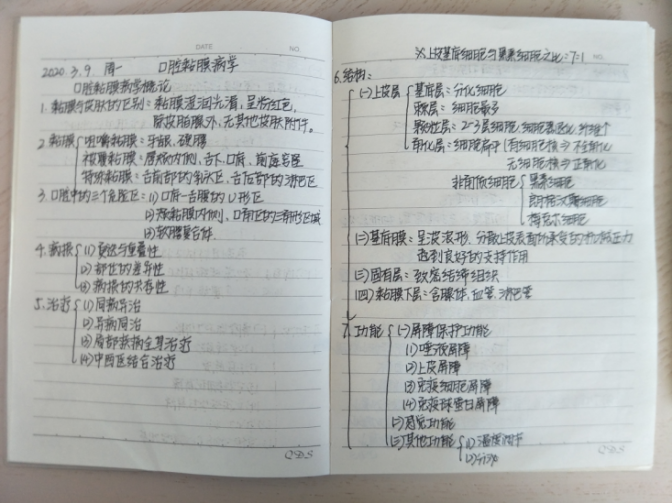 DATE
NO
2020.3.9 周一 口腔粘膜病学
口腔粘膜病学概论
1.粘膜与皮肤的区别：粘膜湿润光滑，呈粉红色，
除皮脂腺外，无其他皮肤附件。
2.粘膜 咀嚼粘膜：牙龈、硬腭
被覆粘膜：唇颊内侧、舌下、口角、
特殊粘膜：舌前部的 区、舌后部的 区
3.口腔中的三个危险区：(1)口角-舌腹的U形区
(2)颊粘膜内侧、口角区的三角形区域
(3)软腭复合体
4.病损 (1)更迭与重叠性
(2)部位的差异性
(3)病损的共存性
5.治疗 (1)同病异治
(2)异病同治
(3)局部疾病全身治疗
(4)中西医结合治疗
QSDS
※上皮基底细胞与黑素细胞之比=7:1
NO.
6.结构：
(一)上皮层 基底层：分化细胞
棘层：细胞最多
颗粒层：2-3层细胞，细胞
角化层：细胞扁平(有细胞核⇒不全角化
无细胞核⇒正角化
非角质细胞 黑素细胞
朗格汉斯细胞
梅克尔细胞
(二)基底膜：呈波浪形，分散上皮表面所承受的 压力
起到良好的支持作用
(三)固有层：致密结缔组织
(四)粘膜下层：含腺体、血管、淋巴管
7.功能 (一)屏障保护功能
(1)唾液屏障
(2)上皮屏障
(3)免疫细胞屏障
(4)免疫球蛋白屏障
(二)感觉功能
(三)其他功能 (1)温度调节
(2)分泌
QSDS